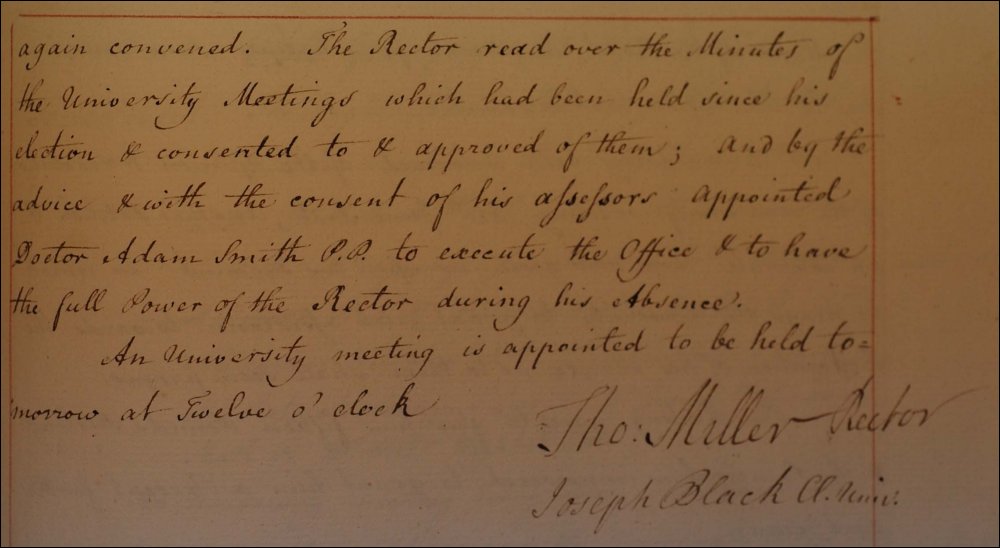 again convened. The Rector read over the Minutes of
the University Meetings which had been held since his
election & consented to & approved of them; and by the
advice & with the consent of his aſseſsors appointed
Doctor Adam Smith P.P. to execute the Office & to have
the full Power of the Rector during his Absence.
An University meeting is appointed to be held to=
morrow at Twelve o' clock
Tho: Miller Rector
Joseph Black Cl. Univ.